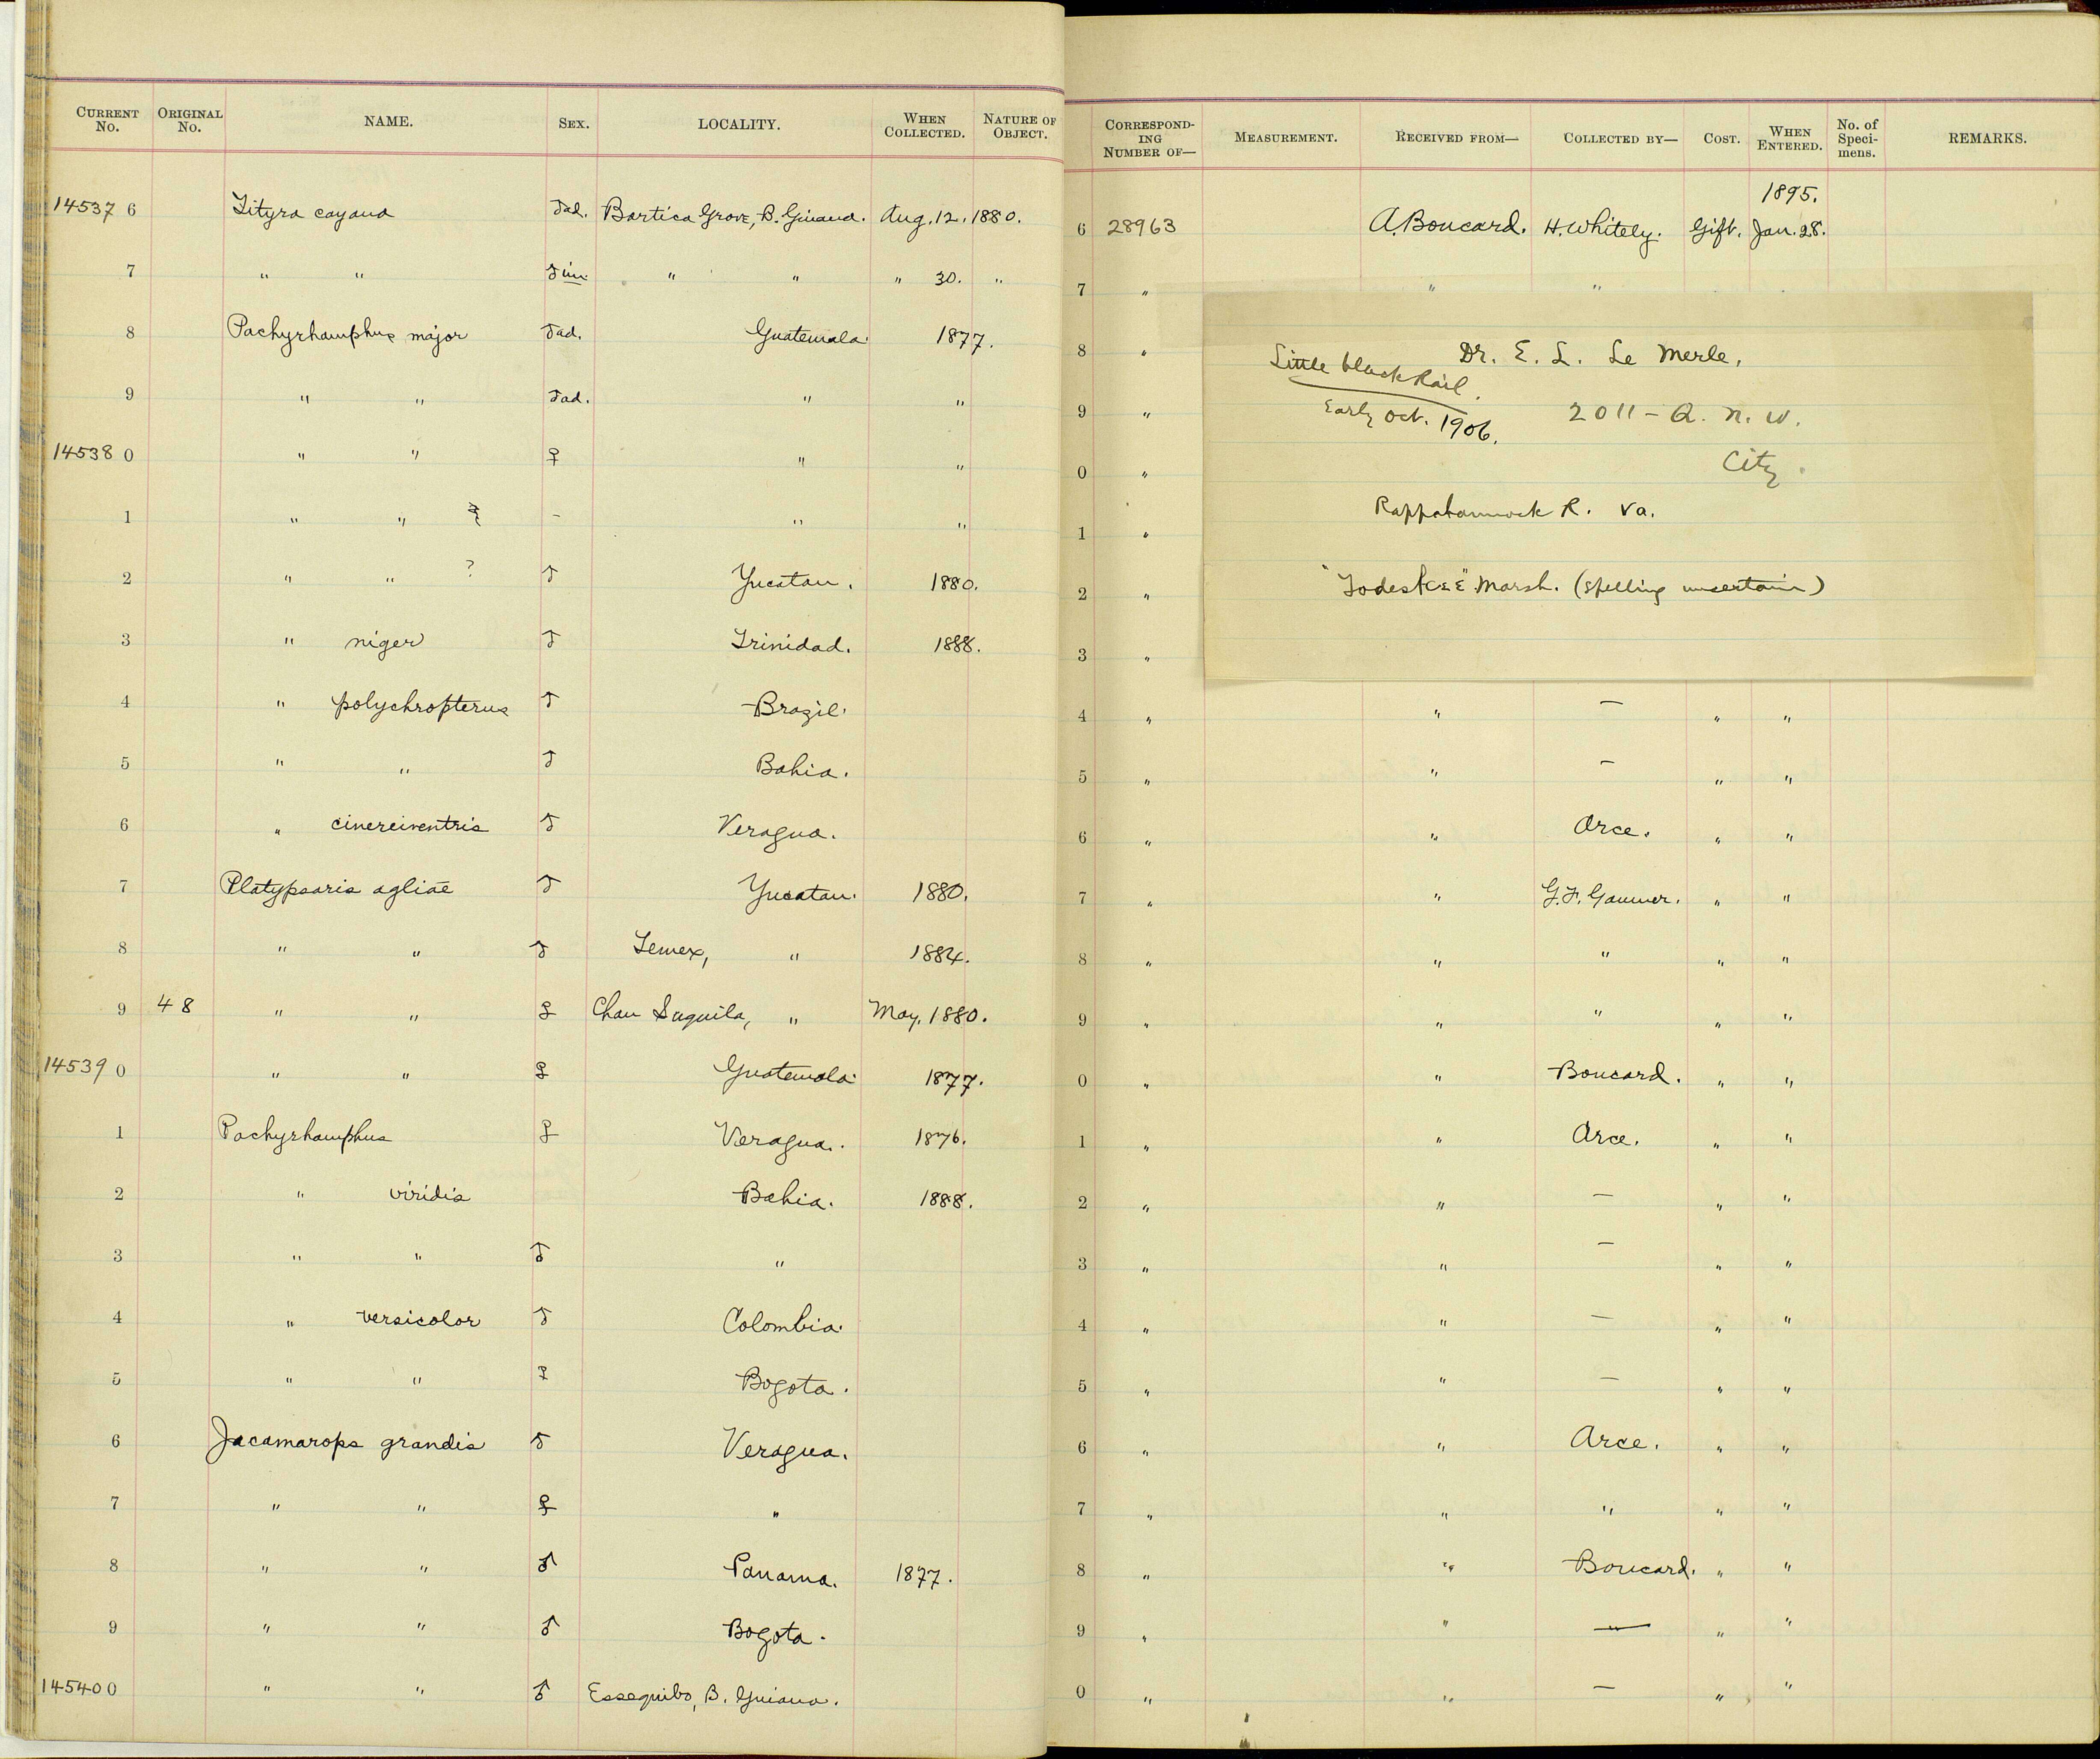 CURRENT No. ORIGINAL No. NAME. SEX. LOCALITY. WHEN COLLECTED. NATURE OF OBJECT.
14537 6 Tityra cayana ♂ad. Bartica Grove, B. Guiana. Aug. 12. 1880.
7 " " ♂im. " " " 30. "
8 Pachyrhamphus major ♂ad. Guatemala. 1877.
9 " " ♂ad. " "
14538 0 " " ♀ " "
1 " " - " "
2 " " ? ♂ Yucatan. 1880.
3 " niger ♂ Trinidad. 1888.
4 " polychropterus ♂ Brazil.
5 " " ♂ Bahia.
6 " cinereiventris ♂ Veragua.
7 Platypsaris agliae ♂ Yucatan. 1880.
8 " " ♂ Temex, " 1884.
9 48 " " ♀ Chan , " May, 1880.
14539 0 " " ♀ Guatemala. 1877.
1 Pachyrhamphus ♀ Veragua. 1876.
2 " viridis Bahia. 1888.
3 " " ♂ "
4 " versicolor ♂ Colombia.
5 " " ♀ Bogota.
6 Jacamarops grandis ♂ Veragua.
7 " " ♀ "
8 " " ♂ Panama. 1877.
9 " " ♂ Bogota.
14540 0 " " ♂ Essequibo, B. Guiana.
CORRESPONDING NUMBER OF— MEASUREMENT. RECEIVED FROM— COLLECTED BY— COST. WHEN ENTERED. No. of Specimens. REMARKS.
1895.
6 28963 A. Boucard. H. Whitely. Gift. Jan. 28.
7 " " "
8 "
9 "
0 "
1 "
2 "
3 "
Dr. E. L. Le Merle,
Little black Rail.
Early Oct. 1906.
2011 - Q. N. W.
City.
Rappahannock R. Va.
Marsh. (Spelling uncertain)
4 " " — " "
5 " " — " "
6 " " Arce. " "
7 " " G. F. Gaumer. " "
8 " " " " "
9 " " " " "
0 " " Boucard. " "
1 " " Arce. " "
2 " " — " "
3 " " — " "
4 " " — " "
5 " " — " "
6 " " Arce. " "
7 " " " " "
8 " " Boucard. " "
9 " " — " "
0 " " — " "